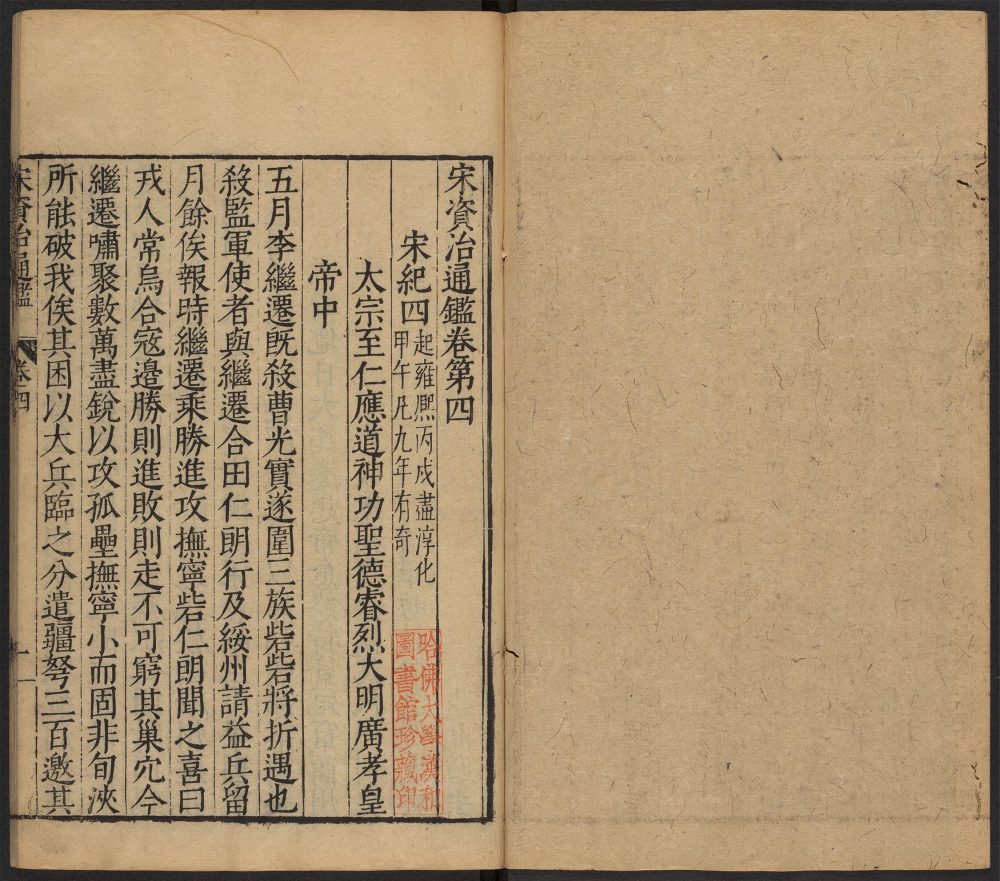 宋資治通鑑卷第四
宋紀四
起雍熈丙戍盡淳化
甲午凡九年有奇
太宗至仁應道神功聖德睿烈大明廣孝皇
帝中
五月李繼遷旣殺曹光實遂圍三族砦砦將折遇也
殺監軍使者與繼遷合田仁朗行及綏州請益兵留
月餘俟報時繼遷乘勝進攻撫寧砦仁朗聞之喜曰
戎人常烏合寇邉勝則進敗則走不可窮其巢穴今
繼遷嘯聚數萬盡銳以攻孤壘撫寧小而固非旬浹
所能破我俟其困以大兵臨之分遣彊弩三百邀其
宋資治通鑑 卷四 一
哈佛大學漢和
圖書館珍藏印